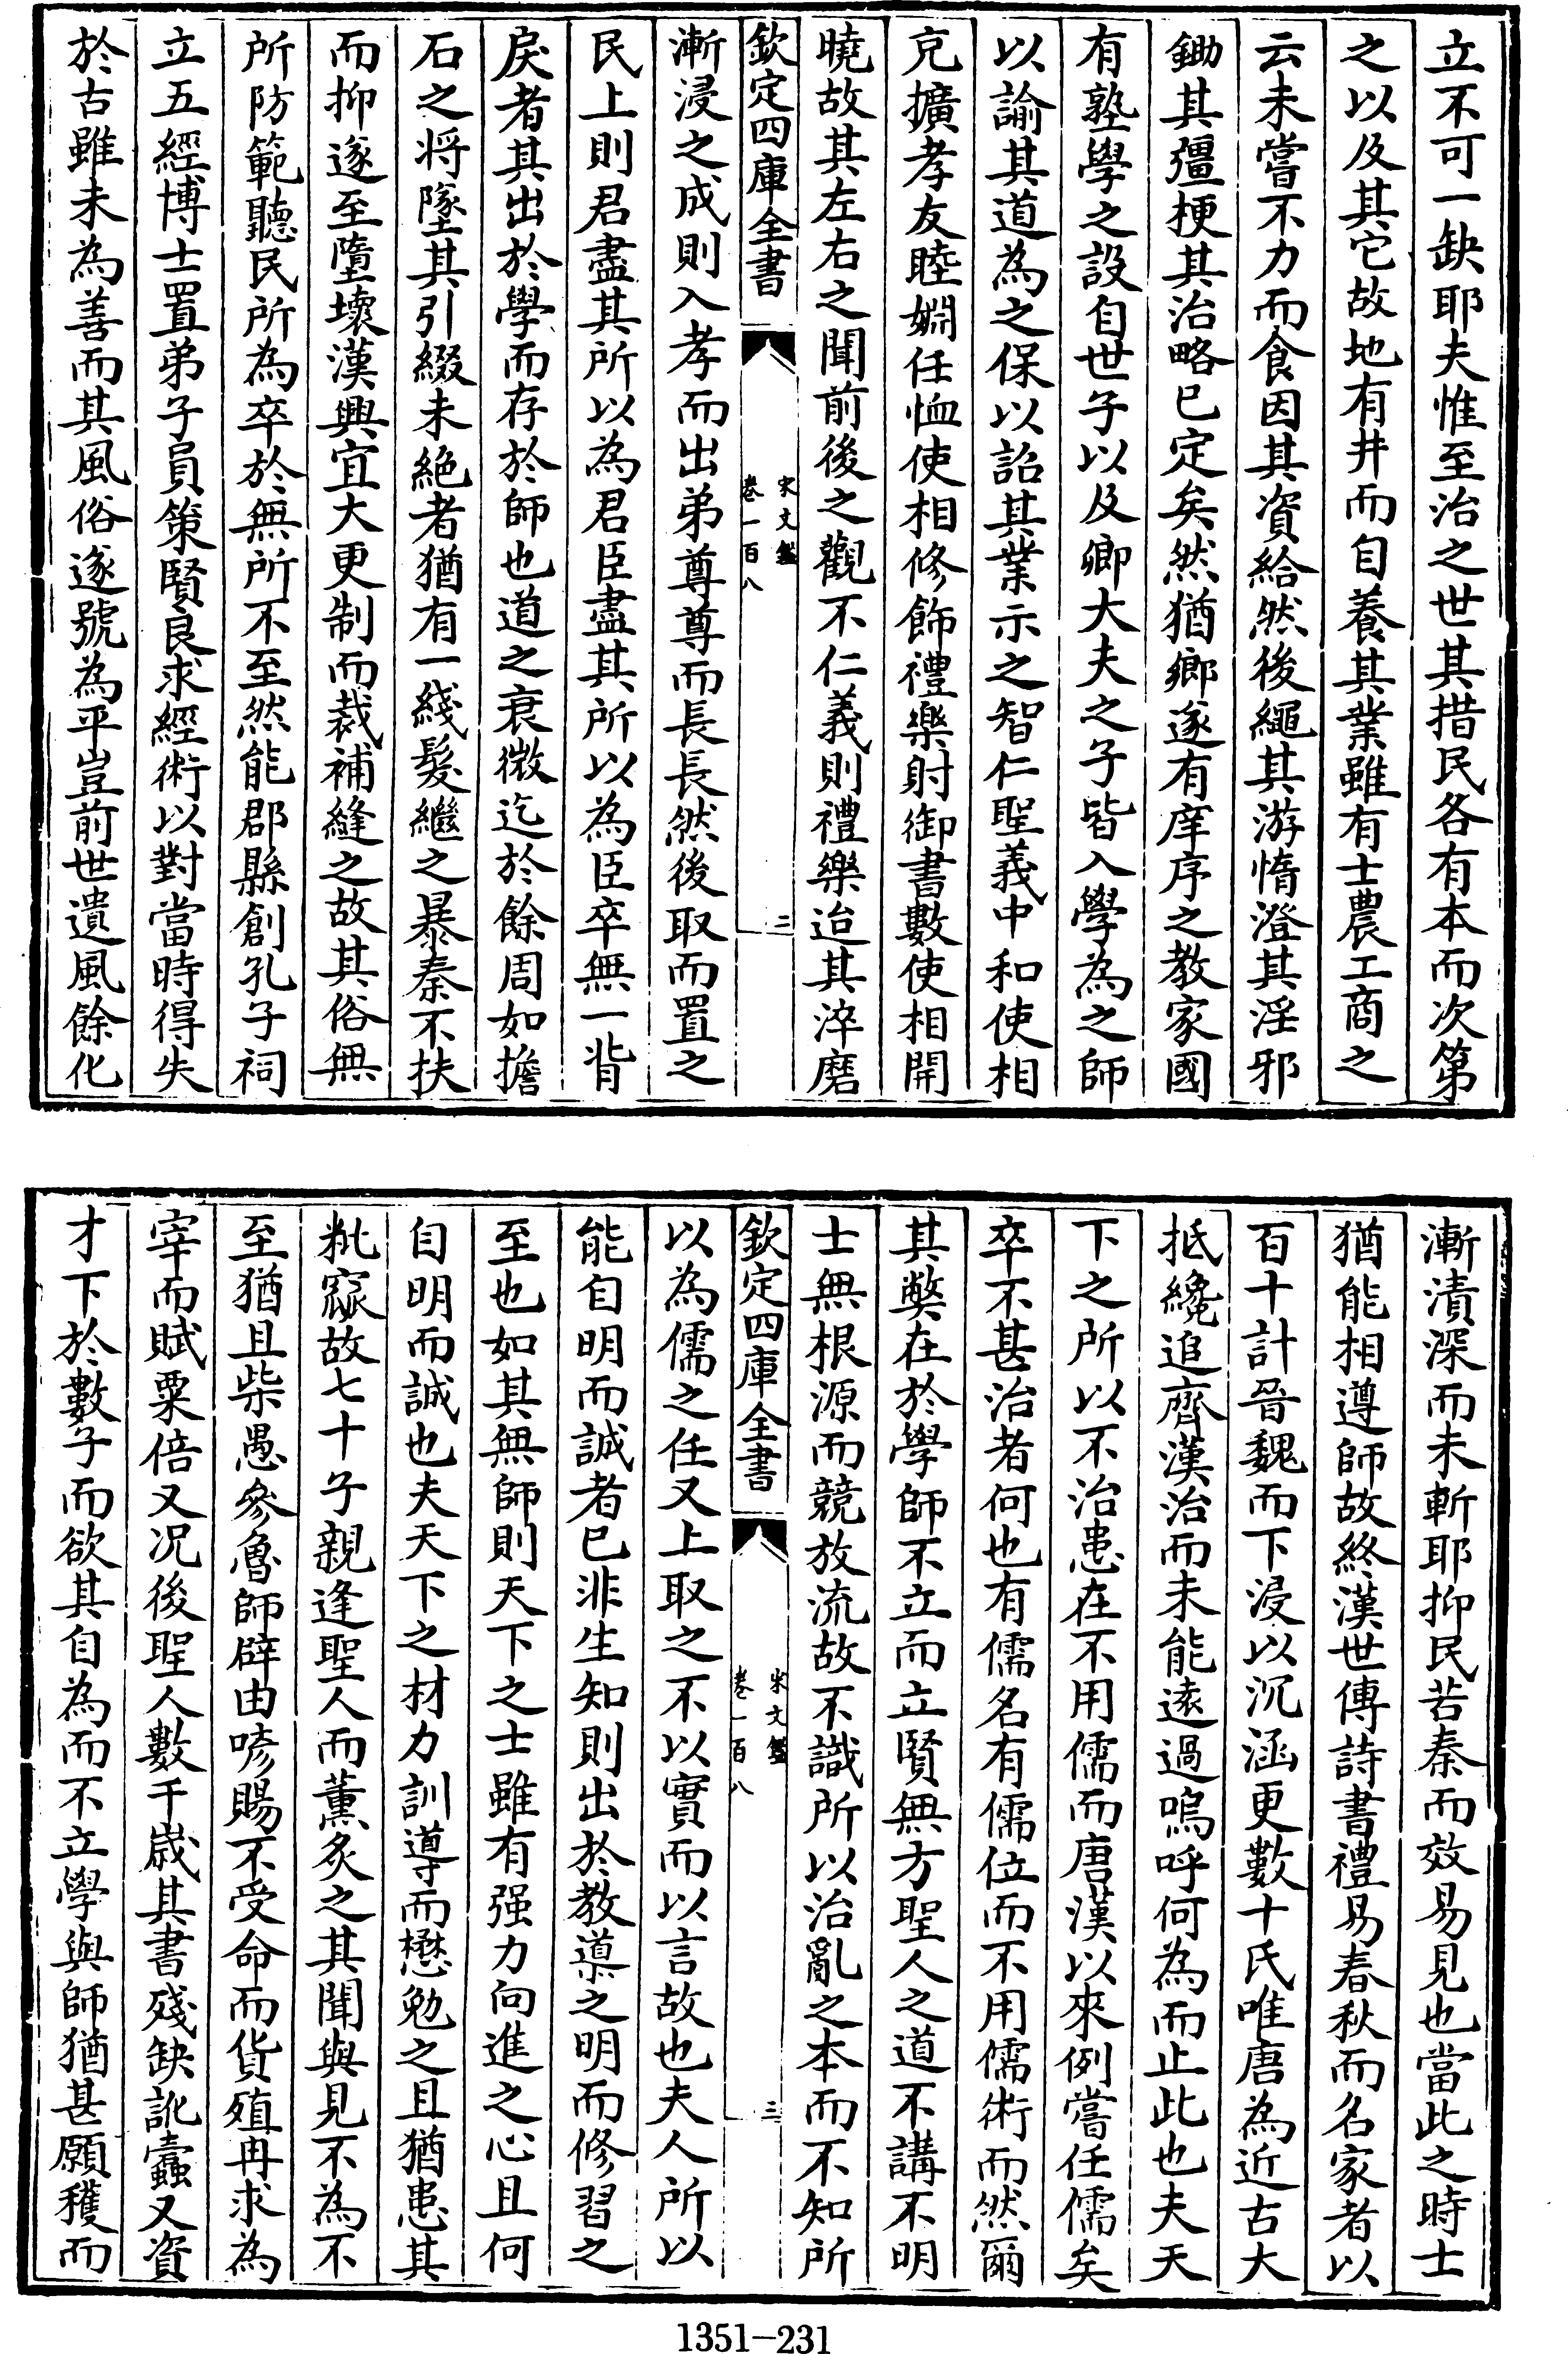 立不可一缺耶夫惟至治之世其措民各有本而次第
之以及其它故地有井而自養其業雖有士農工商之
云未嘗不力而食因其資給然後繩其游惰澄其淫邪
鋤其彊梗其治略已定矣然猶鄉遂有庠序之教家國
有塾學之設自世子以及卿大夫之子皆入學為之師
以諭其道為之保以詔其業示之智仁聖義中和使相
克擴孝友睦婣任恤使相修飾禮樂射御書數使相開
曉故其左右之聞前後之觀不仁義則禮樂迨其淬磨
欽定四庫全書
宋文鑑
卷一百八
二
漸浸之成則入孝而出弟尊尊而長長然後取而置之
民上則君盡其所以為君臣盡其所以為臣卒無一背
戾者其出於學而存於師也道之衰微迄於餘周如擔
石之将墜其引綴未絕者猶有一綫髮繼之暴秦不扶
而抑遂至隳壞漢興宜大更制而裁補縫之故其俗無
所防範聽民所為卒於無所不至然能郡縣創孔子祠
立五經博士置弟子員策賢良求經術以對當時得失
於古雖未為善而其風俗遂號為平豈前世遺風餘化
漸漬深而未斬耶抑民苦秦而效易見也當此之時士
猶能相遵師故終漢世傳詩書禮易春秋而名家者以
百十計晉魏而下浸以沉涵更數十氏唯唐為近古大
抵纔追齊漢治而未能遠過嗚呼何為而止此也夫天
下之所以不治患在不用儒而唐漢以來例嘗任儒矣
卒不甚治者何也有儒名有儒位而不用儒術而然爾
其獘在於學師不立而立賢無方聖人之道不講不明
士無根源而競放流故不識所以治亂之本而不知所
欽定四庫全書
宋文鑑
卷一百八
三
以為儒之任又上取之不以實而以言故也夫人所以
能自明而誠者已非生知則出於教導之明而修習之
至也如其無師則天下之士雖有强力向進之心且何
自明而誠也夫天下之材力訓導而懋勉之且猶患其
粃窳故七十子親逢聖人而薰炙之其聞與見不為不
至猶且柴愚參魯師辟由喭賜不受命而貨殖冉求為
宰而賦粟倍又况後聖人數千歲其書殘缺訛蠹又資
才下於數子而欲其自為而不立學與師猶甚願穫而
1351-231